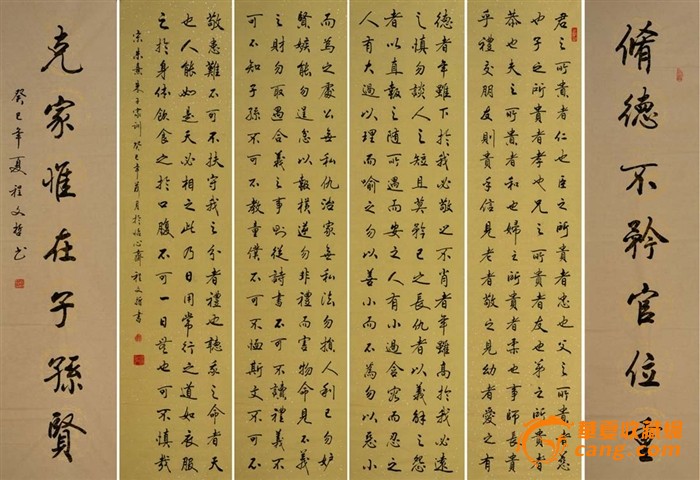 脩德不矜官位重
君之所貴者仁也臣之所貴者忠也父之所貴者慈
也子之所貴者孝也兄之所貴者友也弟之所貴者
恭也夫之所貴者和也婦之所貴者柔也事師長貴
乎禮交朋友則貴乎信見老者敬之見幼者愛之有
德者年雖下於我必敬之不肖者年雖高於我必遠
之慎勿談人之短且莫矜己之長仇者以義解之怨
者以直報之隨所遇而安之人有小過含容而忍之
人有大過以理而喻之勿以善小而不為勿以惡小
而為之處公無私仇治家無私法勿損人利己勿妒
賢嫉能勿逞忿以報橫逆勿非禮而害物命見不義
之財勿取遇合義之事則從詩書不可不讀禮義不
可不知子孫不可不教童僕不可不恤斯文不可不
敬患難不可不扶守我之分者禮也聽我之命者天
也人能如是天必相之此乃日用常行之道如衣服
之於身體飲食之於口腹不可一日無也可不慎哉
宋朱熹朱子家訓 癸巳年荷月於 心齋程文哲書
克家惟在子孫賢
癸巳年夏程文哲書
華夏收藏網
cang.com